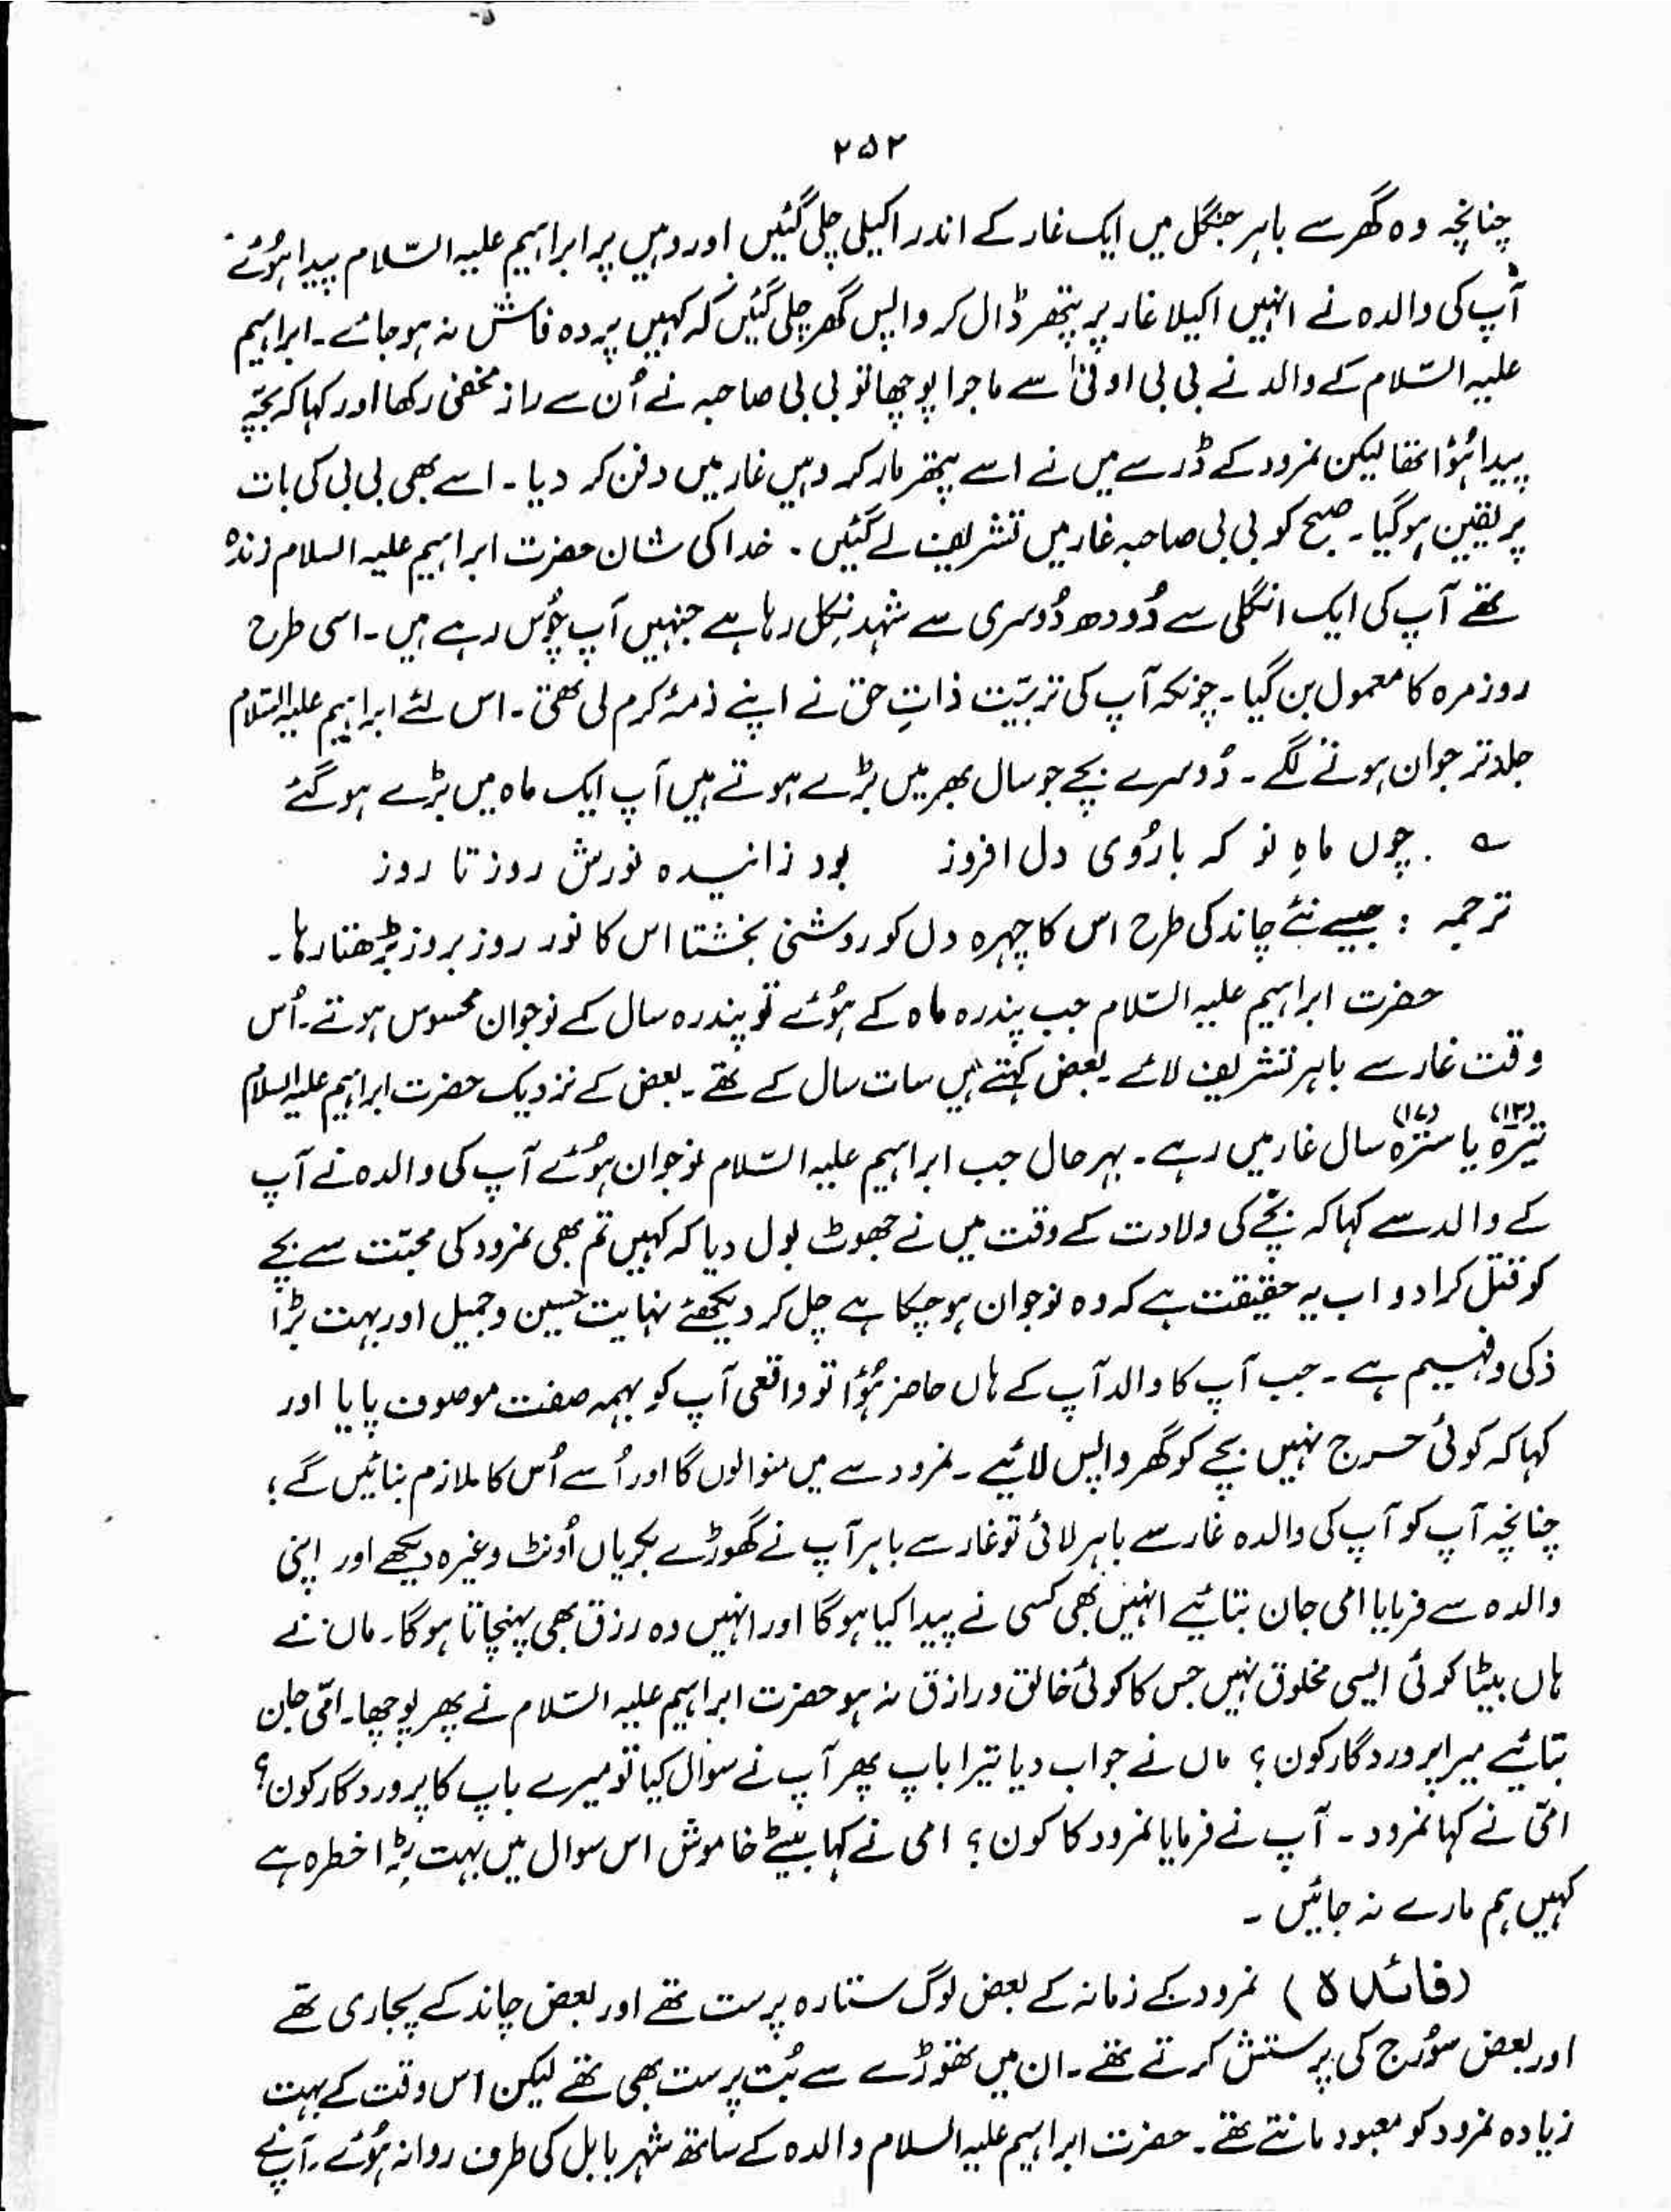 ۲۵۲
چنانچہ وہ گھر سے باہر جنگل میں ایک غار کے اندر اکیلی چلی گئیں اور وہیں پر ابراہیم علیہ السّلام پیدا ہُوئے
آپ کی والدہ نے انہیں اکیلا غار پر پتھر ڈال کر واپس گھر چلی گئیں کہ کہیں پردہ فاش نہ ہو جائے ۔ ابراہیم
علیہ السّلام کے والد نے بی بی اوفیٰ سے ماجرا پوچھا تو بی بی صاحبہ نے اُن سے راز مخفی رکھا اور کہا کہ بچّہ
پیدا ہُوا تھا لیکن نمرود کے ڈر سے میں نے اسے پتھر مار کر وہیں غار میں دفن کر دیا ۔ اسے بھی بی بی کی بات
پر یقین ہو گیا ۔ صبح کو بی بی صاحبہ غار میں تشریف لے گئیں ۔ خدا کی شان حضرت ابراہیم علیہ السلام زندہ
تھے آپ کی ایک انگلی سے دُودھ دُوسری سے شہد نکل رہا ہے جنہیں آپ چُوس رہے ہیں ۔ اسی طرح
روزمرہ کا معمول بن گیا ۔ چونکہ آپ کی تربیّت ذاتِ حق نے اپنے ذمۂ کرم لی تھی ۔ اس لئے ابراہیم علیہ السّلام
جلد تر جوان ہونے لگے ۔ دُوسرے بچے جو سال بھر میں بڑے ہوتے ہیں آپ ایک ماہ میں بڑے ہو گئے
؎ چوں ماہِ نو کہ بارُوی دل افروز بود زانیدہ نورش روز تا روز
ترجمہ : جیسے نئے چاند کی طرح اس کا چہرہ دل کو روشنی بخشتا اس کا نور روز بروز بڑھتا رہا ۔
حضرت ابراہیم علیہ السّلام جب پندرہ ماہ کے ہُوئے تو پندرہ سال کے نوجوان محسوس ہوتے ۔ اُس
وقت غار سے باہر تشریف لائے ۔ بعض کہتے ہیں سات سال کے تھے ۔ بعض کے نزدیک حضرت ابراہیم علیہ السلام
تیرہ (۱۳) یا سترہ (۱۷) سال غار میں رہے ۔ بہرحال جب ابراہیم علیہ السّلام نوجوان ہُوئے آپ کی والدہ نے آپ
کے والد سے کہا کہ بچّے کی ولادت کے وقت میں نے جھوٹ بول دیا کہ کہیں تم بھی نمرود کی محبّت سے بچے
کو قتل کرادو اب یہ حقیقت ہے کہ وہ نوجوان ہو چکا ہے چل کر دیکھئے نہایت حسین و جمیل اور بہت بڑا
ذکی و فہیم ہے ۔ جب آپ کا والد آپ کے ہاں حاضر ہُوا تو واقعی آپ کو بہمہ صفت موصوف پایا اور
کہا کہ کوئی حرج نہیں بچے کو گھر واپس لائیے ۔ نمرود سے میں منوالوں گا اور اُسے اُس کا ملازم بنائیں گے ؛
چنانچہ آپ کو آپ کی والدہ غار سے باہر لائی تو غار سے باہر آپ نے گھوڑے بکریاں اُونٹ وغیرہ دیکھے اور اپنی
والدہ سے فرمایا امی جان بتائیے انہیں بھی کسی نے پیدا کیا ہوگا اور انہیں وہ رزق بھی پہنچاتا ہوگا ۔ ماں نے
ہاں بیٹا کوئی ایسی مخلوق نہیں جس کا کوئی خالق و رازق نہ ہو حضرت ابراہیم علیہ السّلام نے پھر پوچھا ۔ امّی جان
بتائیے میرا پروردگار کون ؟ ماں نے جواب دیا تیرا باپ پھر آپ نے سوال کیا تو میرے باپ کا پروردگار کون ؟
امّی نے کہا نمرود ۔ آپ نے فرمایا نمرود کا کون ؟ امی نے کہا بیٹے خاموش اس سوال میں بہت بڑا خطرہ ہے
کہیں ہم مارے نہ جائیں ۔
(فائدہ) نمرود کے زمانہ کے بعض لوگ ستارہ پرست تھے اور بعض چاند کے پجاری تھے
اور بعض سُورج کی پرستش کرتے تھے ۔ ان میں تھوڑے سے بُت پرست بھی تھے لیکن اس وقت کے بہت
زیادہ نمرود کو معبود مانتے تھے ۔ حضرت ابراہیم علیہ السلام والدہ کے ساتھ شہر بابل کی طرف روانہ ہُوئے ۔ آپ نے